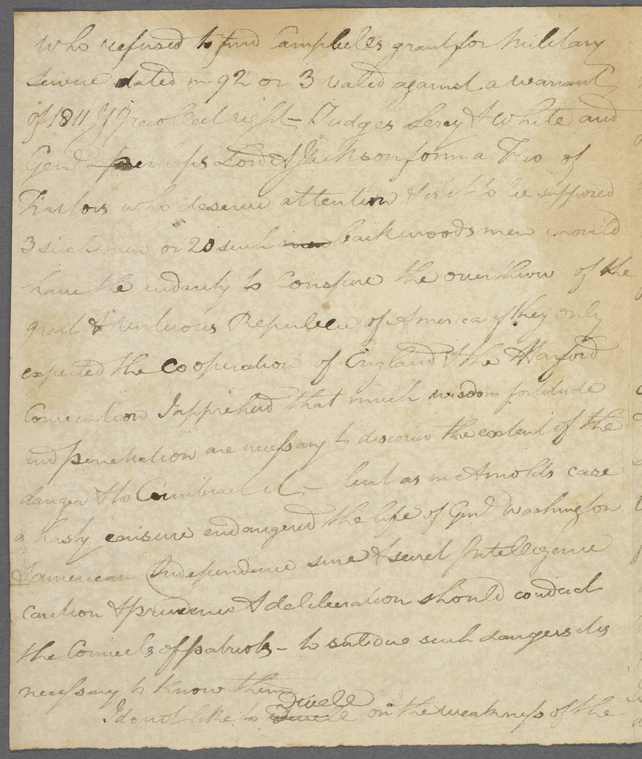 who refused to find Campbells grant for Military
service dated in 92 or 3 valid against a warrant
of 1811 If Jreco &c right - Judges Leroy & White and
Genl perhaps Lord & Jackson form a Trio of
Traitors who deserve attention & is it to be supposed
3 such men or 20 such backwoods men would
have the audacity to Conspire the overthrow of the
great & virtuous Republic of America if they only
expected the cooperation of England & the Harford
Convention I apprehend that much wisdom fortitude
and penetration are necessary to discover the extent of the
danger & to Counteract it - but as in Arnolds case
a hasty censure endangered the life of Genl Washington
& american Independence sure & secret Intelligence
caution & prudence & deliberation should conduct
the Councils of patriots - to subdue such dangers its
necessary to know them
I do not like to Dwell on the weakness of the